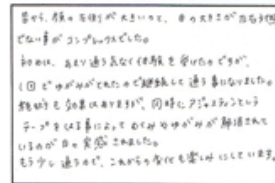 昔から、顔の左側が大きいのと、目の大きさが左右対称
でない事がコンプレックスでした。
初めは、あまり過信なく体験を受けたのですが、
1回でゆがみがとれたので継続して通う事になりました。
施術も効果はありますが、同時にアジャスティンという
テープをはる事によって むくみやゆがみが解消されて
いるのが目の実感されました。
もう少し通うので、これからの変化も楽しみにしています。